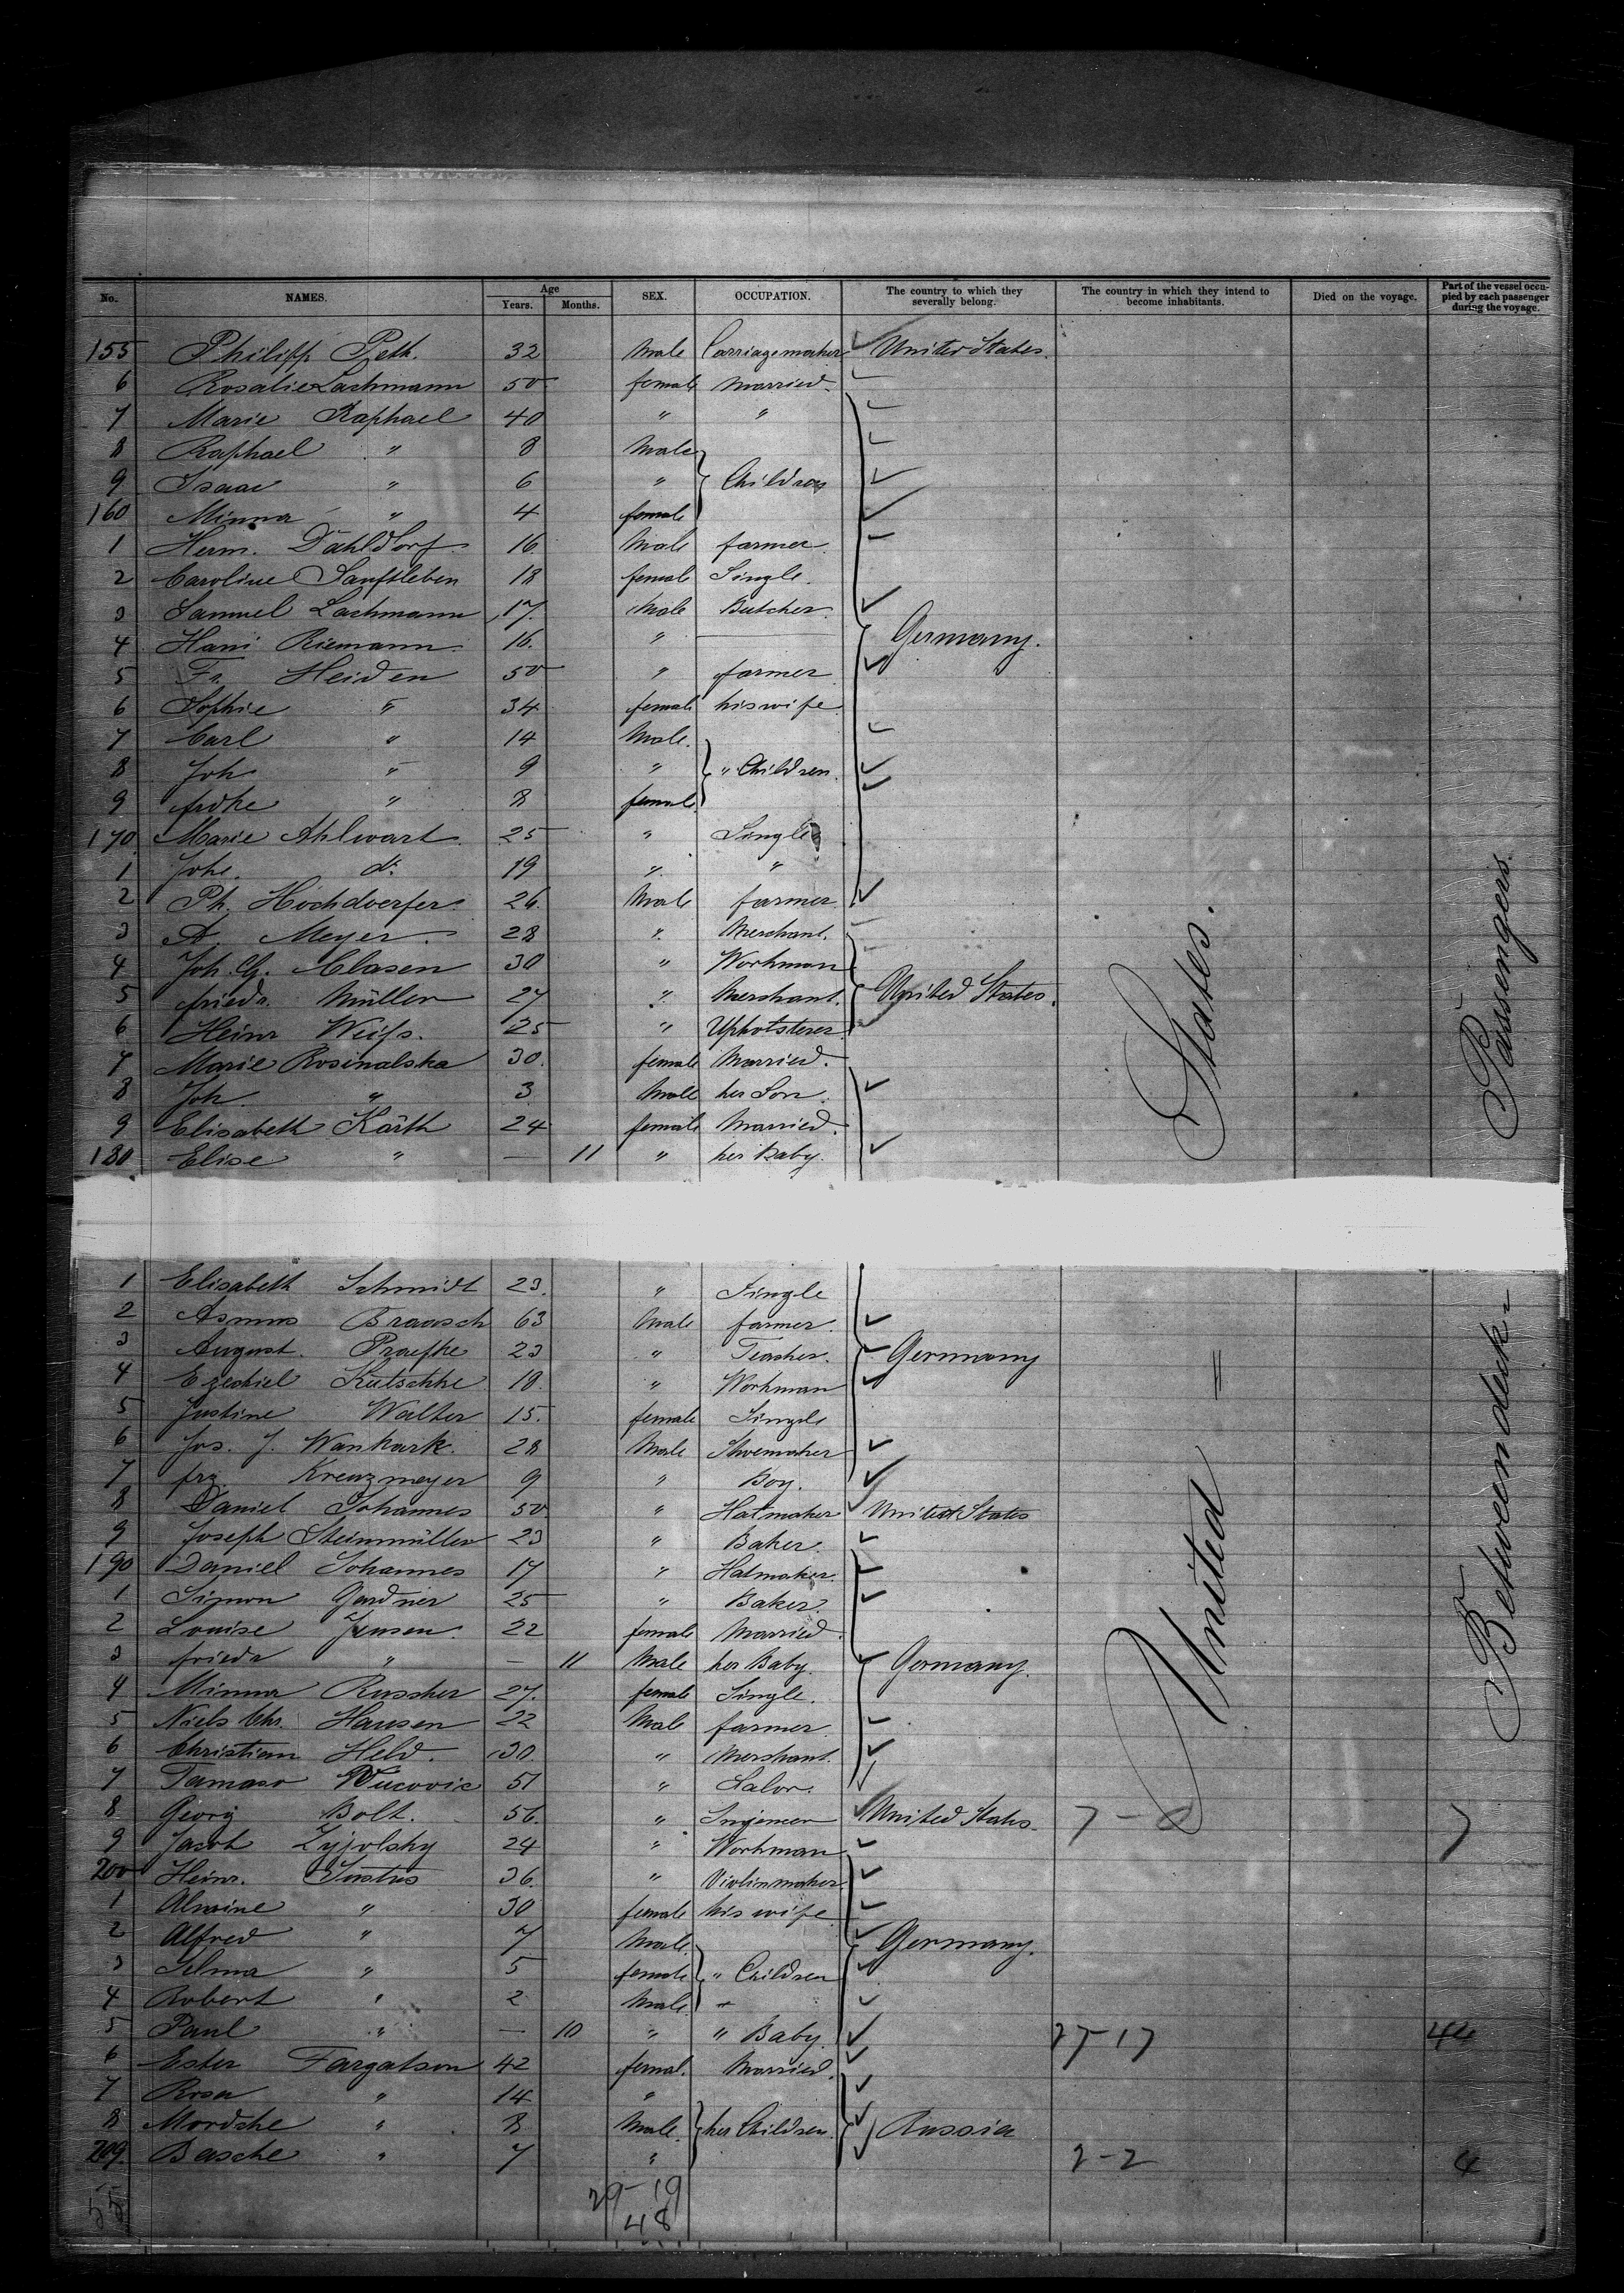 No. NAMES. Age Years. Months. SEX. OCCUPATION. The country to which they severally belong. The country in which they intend to become inhabitants. Died on the voyage. Part of the vessel occupied by each passenger during the voyage.
155 Philipp Peth. 32 Male Carriagemaker United States.
6 Rosalie Lachmann 50 female Married.
7 Marie Raphael 40 " "
8 Raphael " 8 Male
9 Isaac " 6 " Children
160 Minna " 4 female
1 Herm. Dahldorf 16 Male farmer.
2 Caroline Sanftleben 18 female Single.
3 Samuel Lachmann 17. Male Butcher.
4 Hani Riemann 16. " Germany.
5 Fr. Heiden 50 " farmer
6 Sophie " 34 female his wife
7 Carl " 14 Male.
8 Joh " 9 " " Children.
9 " 8 female
170 Marie Ahlwart 25 " Single
1 Johe. do. 19 " "
2 Ph. Hochdoerfer 26. Male farmer
3 A. Meyer. 28 " Merchant.
4 Joh. G. Clasen 30 " Workman
5 frieda. Müller 27 " Merchant. United States.
6 Heinr Weifs. 25 " Upholsterer
7 Marie Rosinalska 30. female Married.
8 Joh. " 3 Male her Son.
9 Elisabeth Kärth 24 female Married.
180 Elise " — 11 " her Baby.
1 Elisabeth Schmidt 23. " Single
2 Asmus Braasch 63 Male farmer.
3 August. Praefke 23 " Teacher. Germany
4 Ezechiel Kutschke 18. " Workman
5 Justine Walter 15. female Single
6 Jos. J. Wankark. 28 Male Shoemaker
7 frz. Kreuzmeyer 9 " Boy.
8 Daniel Johannes 50 " Hatmaker United States
9 Joseph Steinmüller 23 " Baker.
190 Daniel Johannes 17 " Hatmaker.
1 Simon Gardner 25 " Baker.
2 Louise Jensen. 22 female Married.
3 frieda " — 11 Male her Baby. Germany.
4 Minna Ruscher 27. female Single.
5 Niels Chr. Hansen 22 Male farmer
6 Christian Held. 30. " Merchant.
7 Tamaso Vucovic 51 " Salor.
8 Georg Bolt. 56. " Ingineer United States. 7
9 Jacob Zyjolsky 24 " Workman
200 Heinr. Justus 36. " Violinmaker
1 Alwine " 30 female his wife
2 Alfred " 7 Male. Germany.
3 Selma " 5 female " Children
4 Robert " 2 Male "
5 Paul " — 10 " " Baby 27-17 44
6 Ester Fargatson 42 femal. Married.
7 Rosa " 14 "
8 Mordche " 8 Male. her Children. Russia
209. Basche " 7 " 2-2 4
29-19
48
55
United = States.
Betweendeck Passengers.